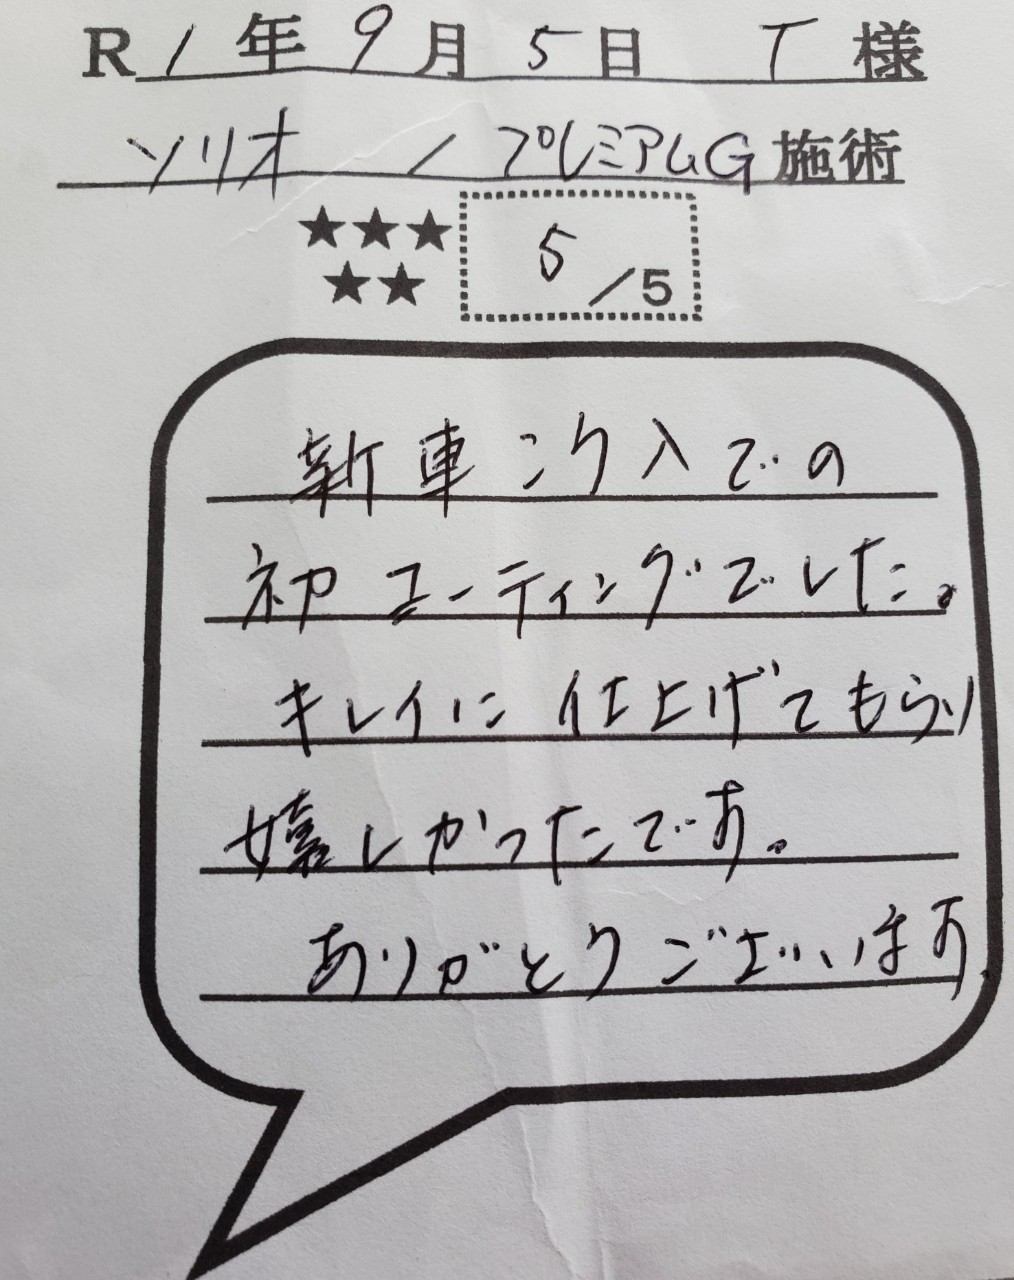 R1年9月5日 T様
ソリオ / プレミアムG施術
★★★
★★
5/5
新車こう入での
初コーティングでした。
キレイに仕上げてもらい
嬉しかったです。
ありがとうございます。